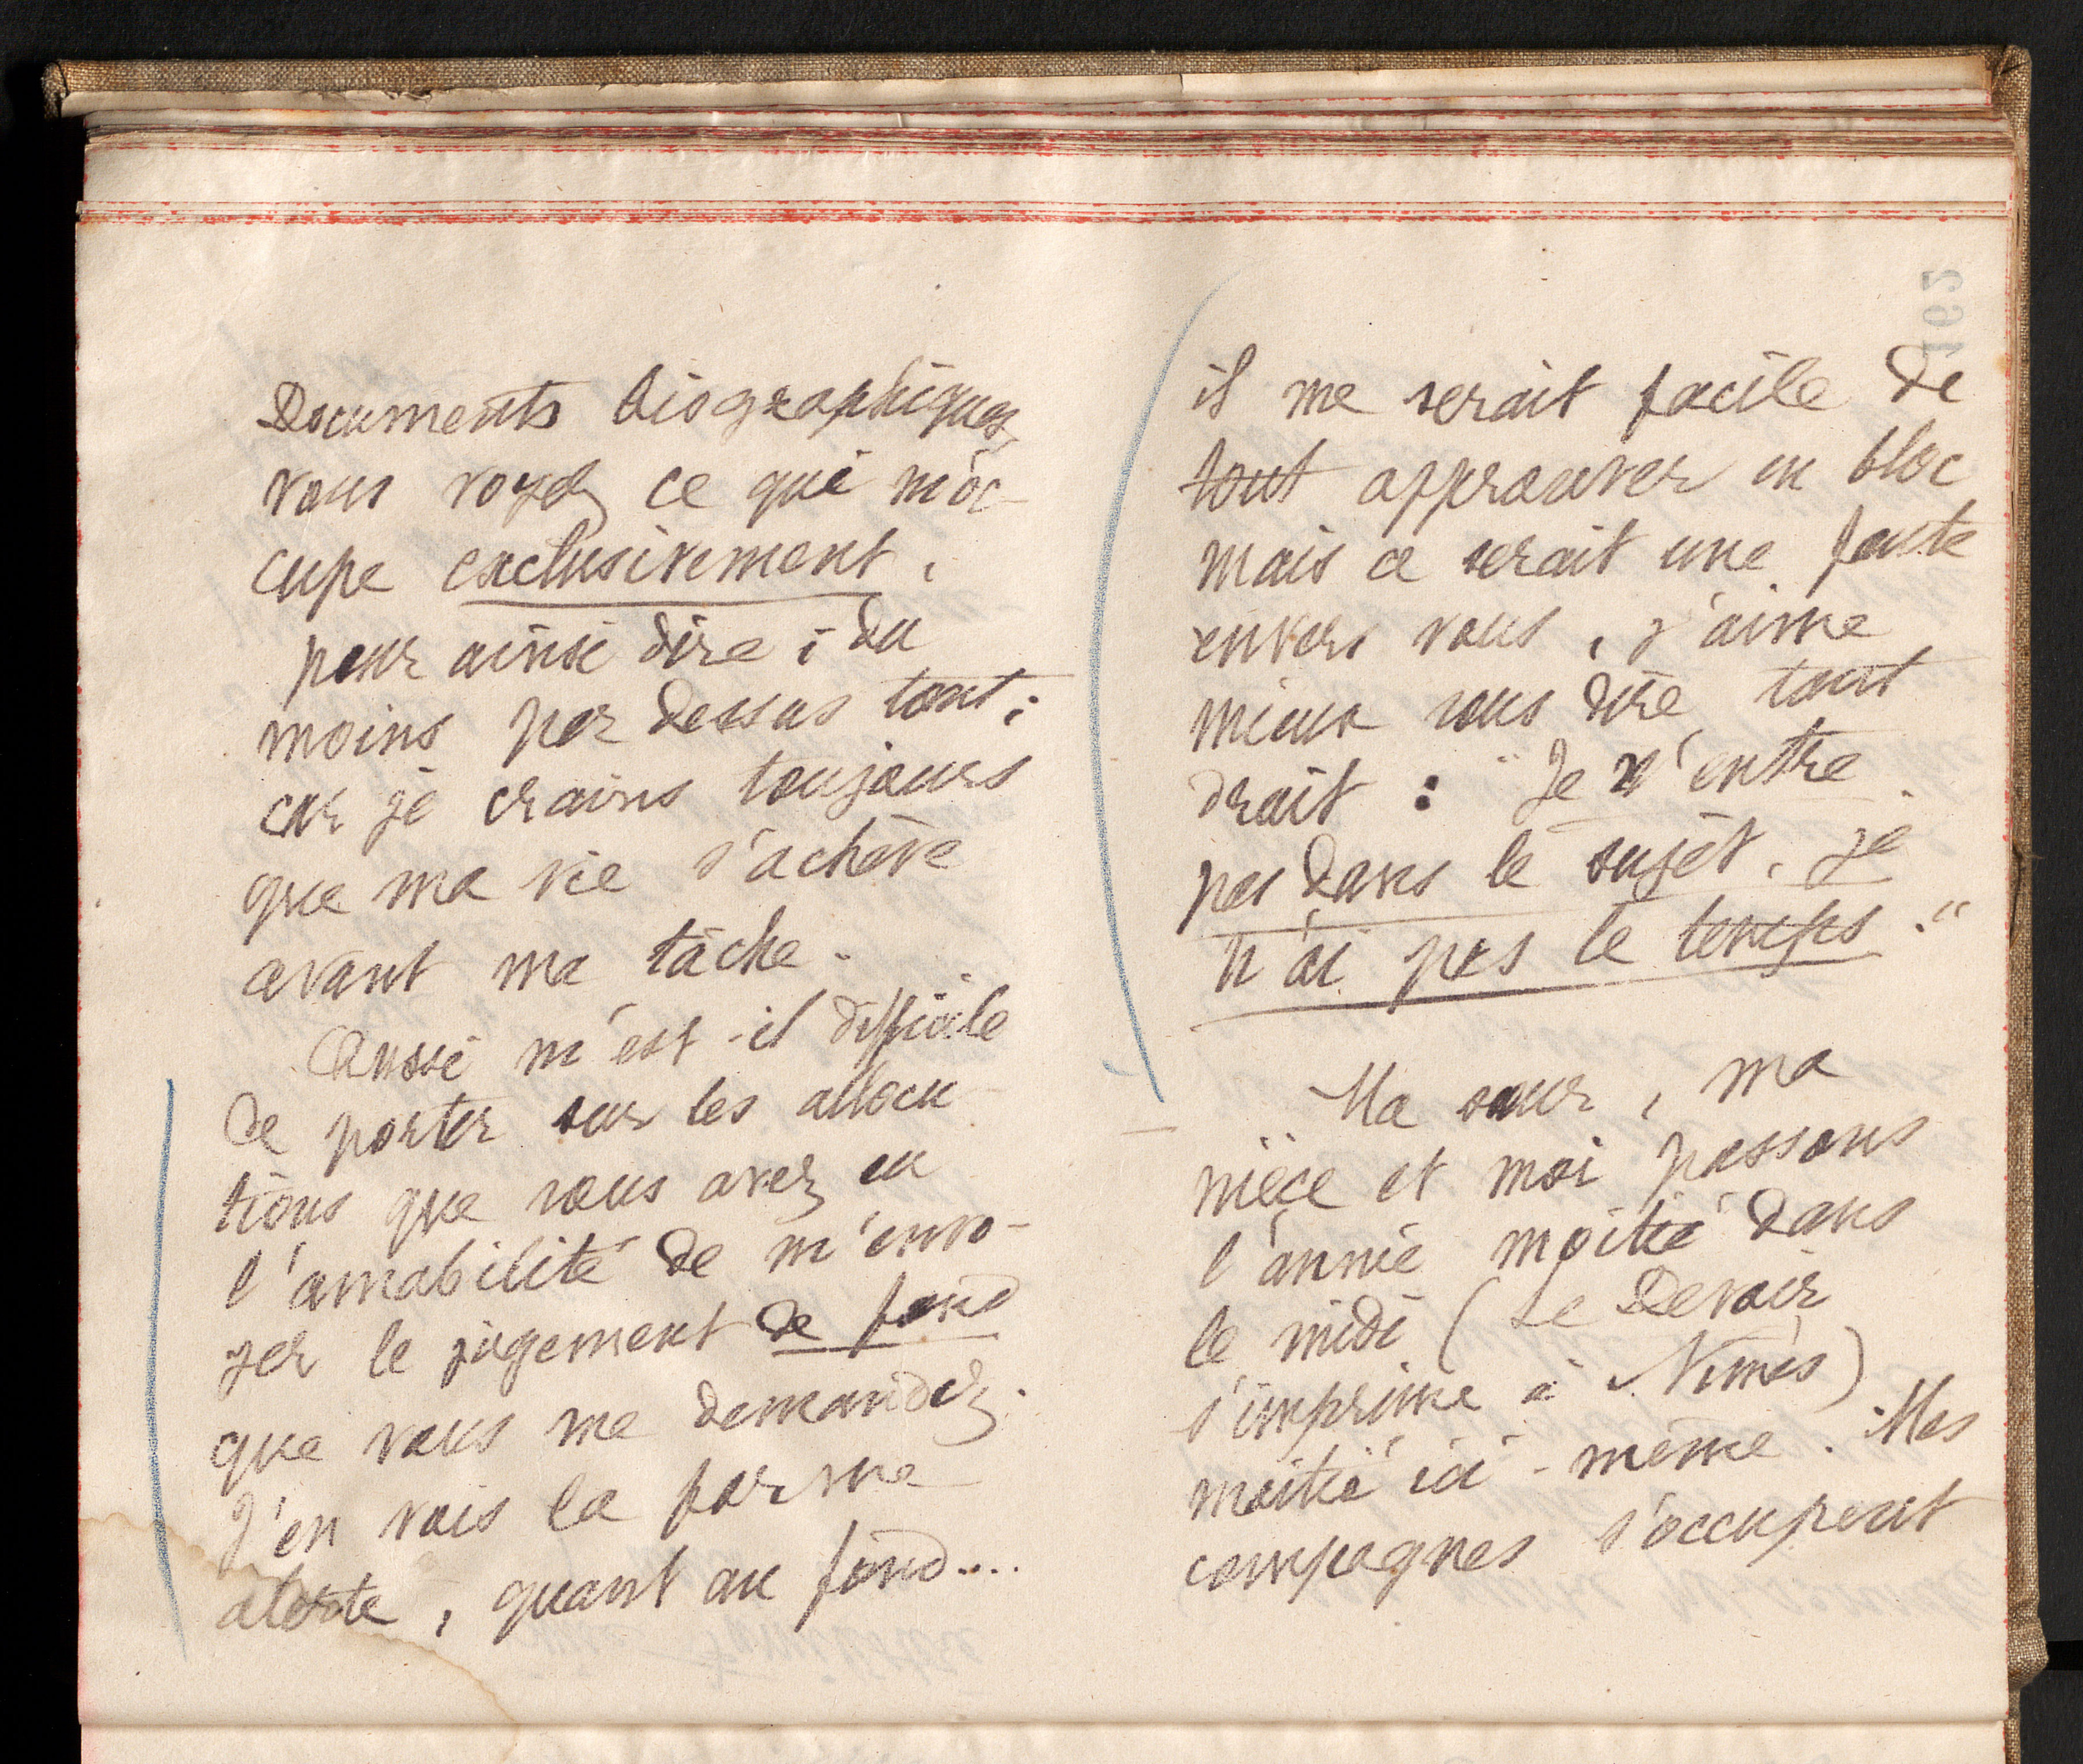 Documents biographiques,
vous voyez ce qui m'oc-
cupe exclusivement,
pour ainsi dire ; du
moins par dessus tout ;
car je crains toujours
que ma vie s'achève
avant ma tâche.
Aussi m'est-il difficile
de porter sur les allocu-
tions que vous avez eu
l'amabilité de m'envo-
yer le jugement de fond
que vous me demandez.
J'en vois la forme
alerte, quant au fond....
il me serait facile de
tout approuver en bloc
mais ce serait une faute
envers vous, j'aime
mieux vous dire tout
droit : "Je n'entre
pas dans le sujet, je
n'ai pas le temps."
Ma sœur, ma
nièce et moi passons
l'année moitié dans
le midi (Le Devoir
s'imprime à Nîmes)
moitié ici-même. Mes
compagnes s'occupent
162